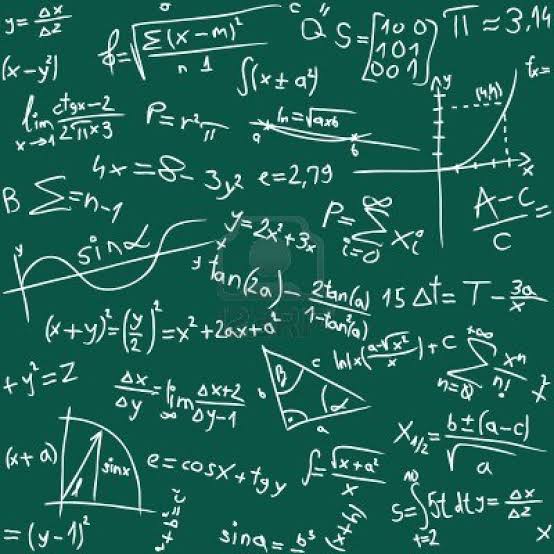 y = Δx/Δz
ϕ = √(Σ(x-m)²/n 1)
Q" S = [1 0 0
1 0 1
0 0 1]
π ≈ 3,14
(x-y²)
∫(x±a²)
y
(4,4)
fx=
lim x→1 ctgx-2/2π×3
P = r²π
ln = √axb
a b
x
4x = 8 - 3y² e = 2,79
B Σ = n-1
y = 2x² + 3x
P = Σ i=0 ∞ xi
A-C/C =
y sinα x
y tan(2a) = 2tan(a)/1-tan²(a)
15 Δt = T - 3a/x
(x+y)² = (y/2)² = x² + 2ax + a²
ln|x(a-√x²/x)| + C
Σ n=0 +∞ xⁿ/n!
+ y² = Z
Δx/Δy = lim ∞ Δx+2/Δy-1
β c
b α
a
X1/2 = b±(a-c)/√a
(x+a)
sinx
e = cosx + tgy
∫ = √x+a²/x
S = ∫ t=2 10 5t dt y = Δx/Δz
= (y-1)²
sina = b³
(x+h)
x